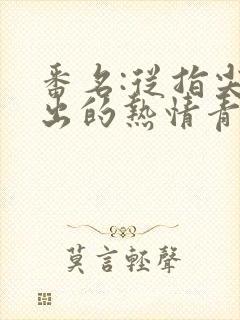 番名:從指尖
出的熱情青
莫言輕聲